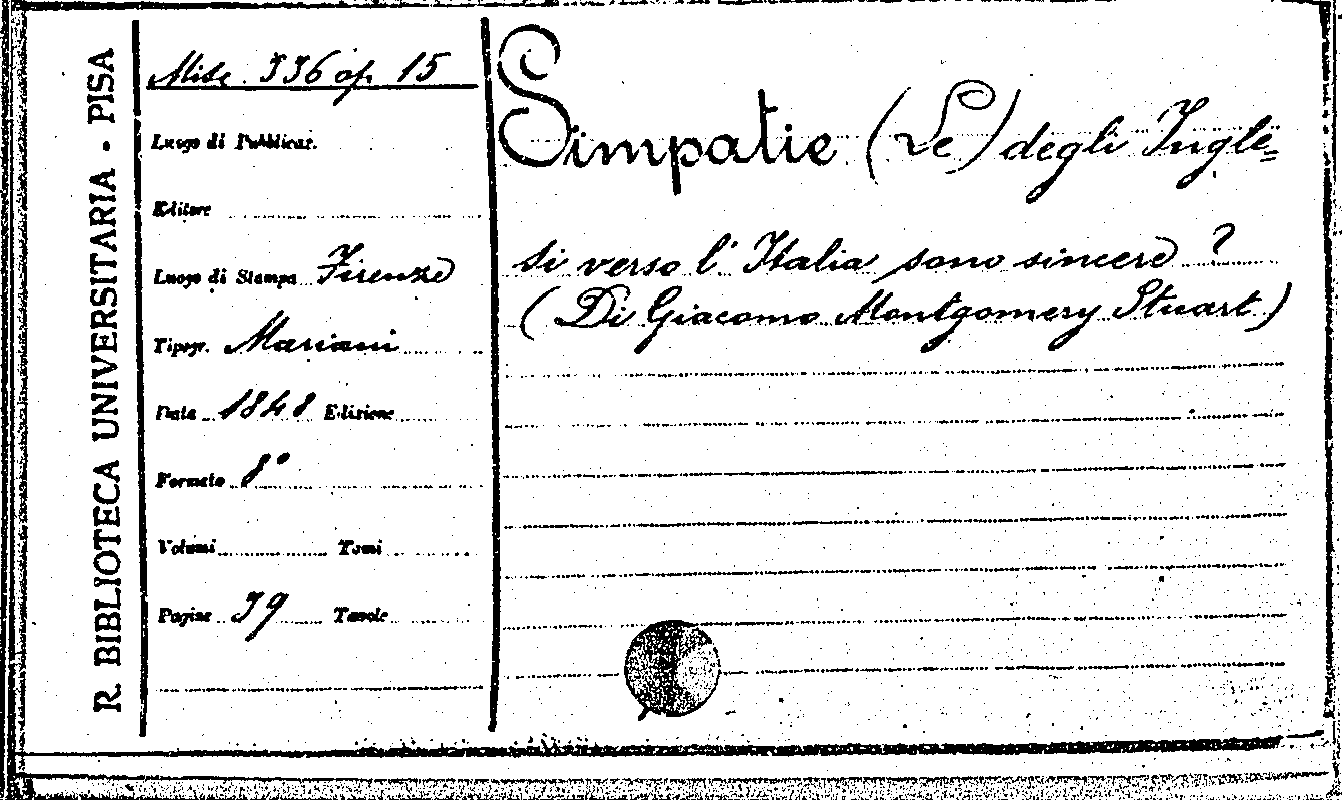 R. BIBLIOTECA UNIVERSITARIA - PISA
Misc. 336 op. 15
Luogo di Pubblicaz.
Editore
Luogo di Stampa Firenze
Tipogr. Mariani
Data 1848 Edizione
Formato 8°
Volumi Tomi
Pagine 39 Tavole
Simpatie (Le) degli Ingle=
si verso l'Italia sono sincere?
(Di Giacomo Montgomery Stuart)